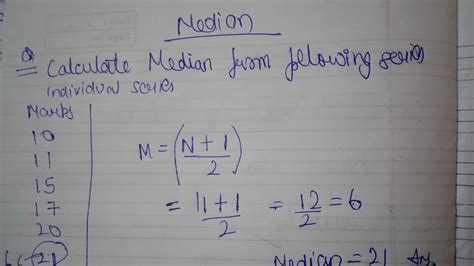 Median
Q Calculate Median from following series
Individual series
Marks
10
11
15
17
20
21
M = (N+1/2)
= 11+1/2 = 12/2 = 6
Median = 21 Ans